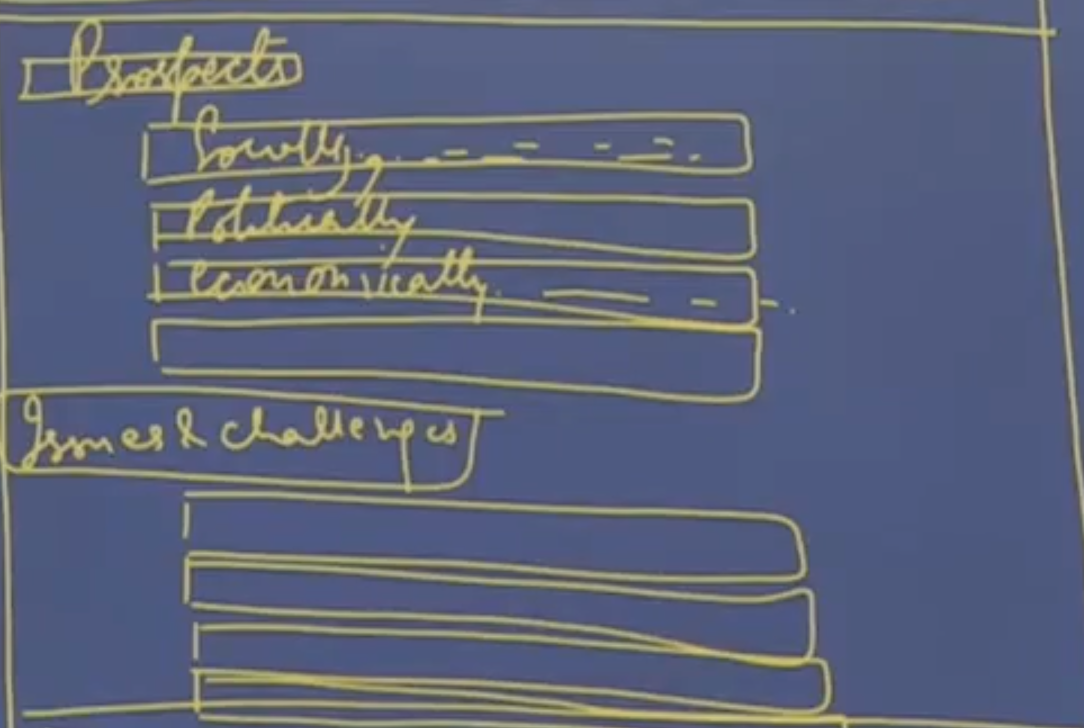 Prospects
Socially,
Politically
economically.
Issues & challenges